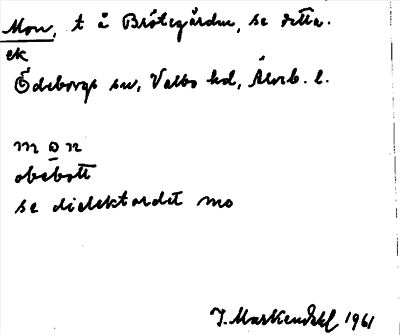 Mon, t å Brötegården, se detta.
ek
Ödeborgs sn, Valbo hd, Älvsb. l.
mon
obebott
se dialektordet mo
J. Markendahl 1961